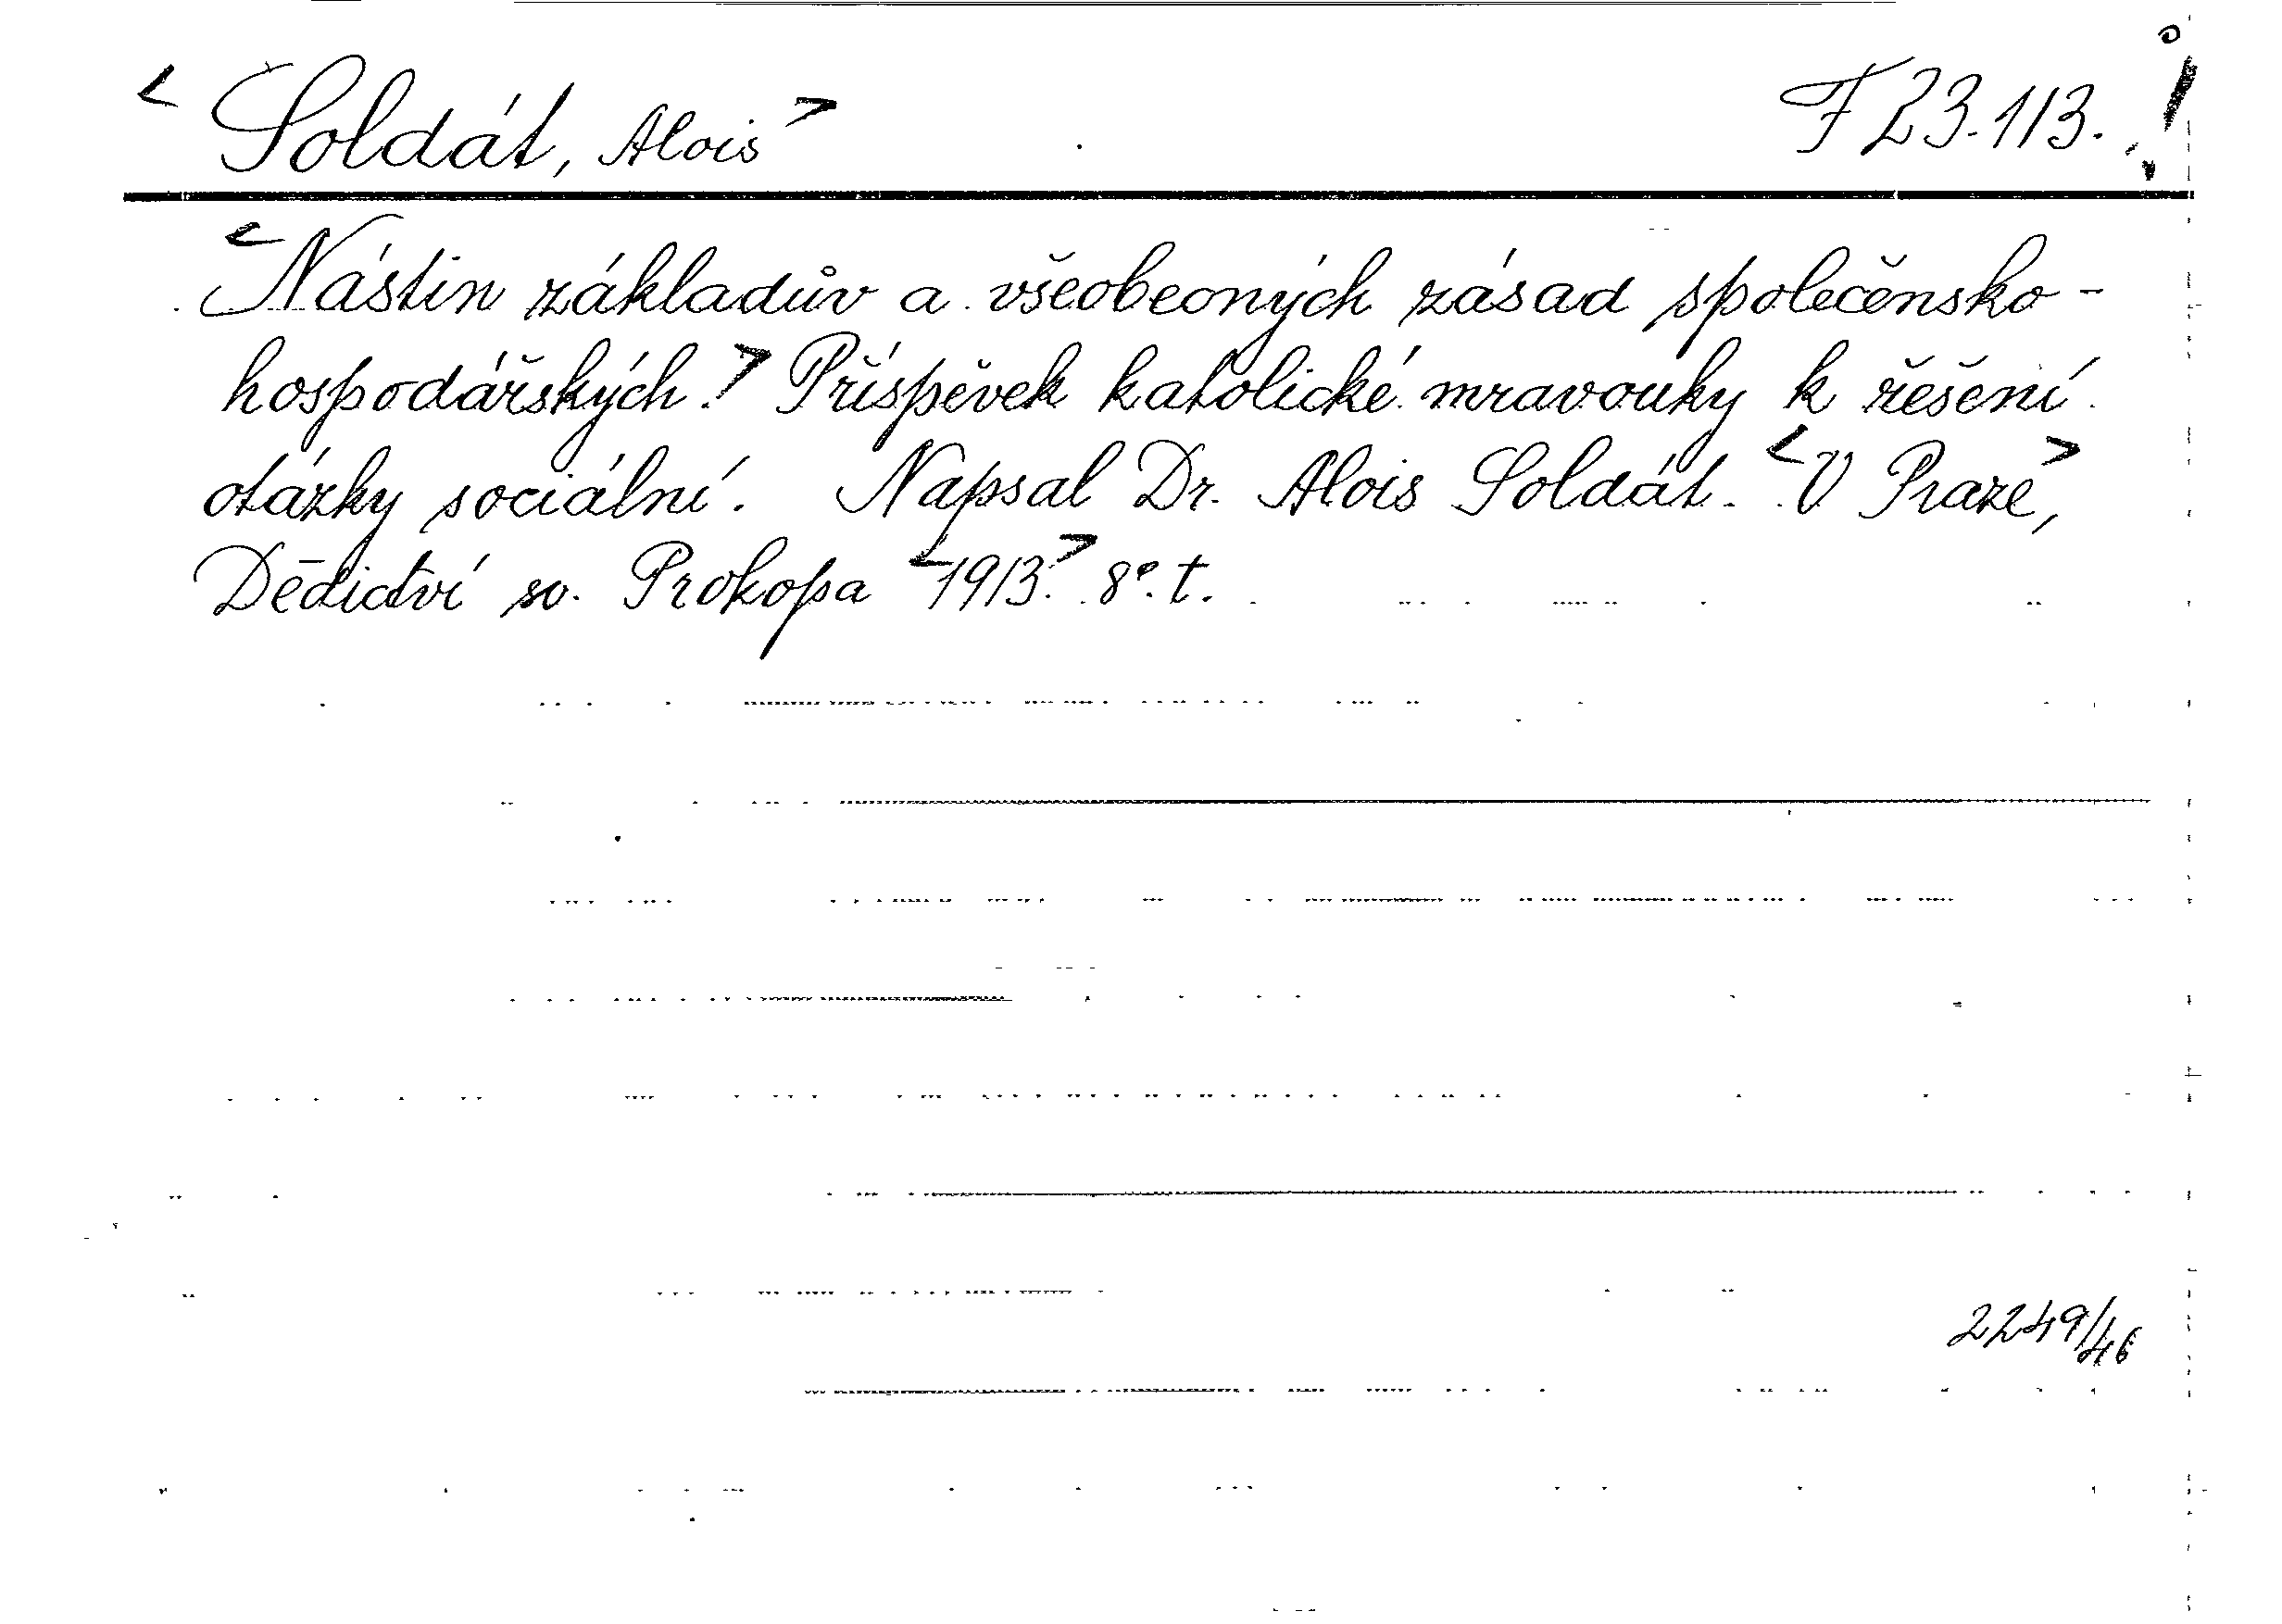 <Soldát, Alois> F 23.113.
<Nástin základův a všeobecných zásad společensko-
hospodářských.> Příspěvek katolické mravouky k řešení
otázky sociální. Napsal Dr. Alois Soldát. <V Praze>,
Dědictví sv. Prokopa <1913.> 8°. t.
2249/46